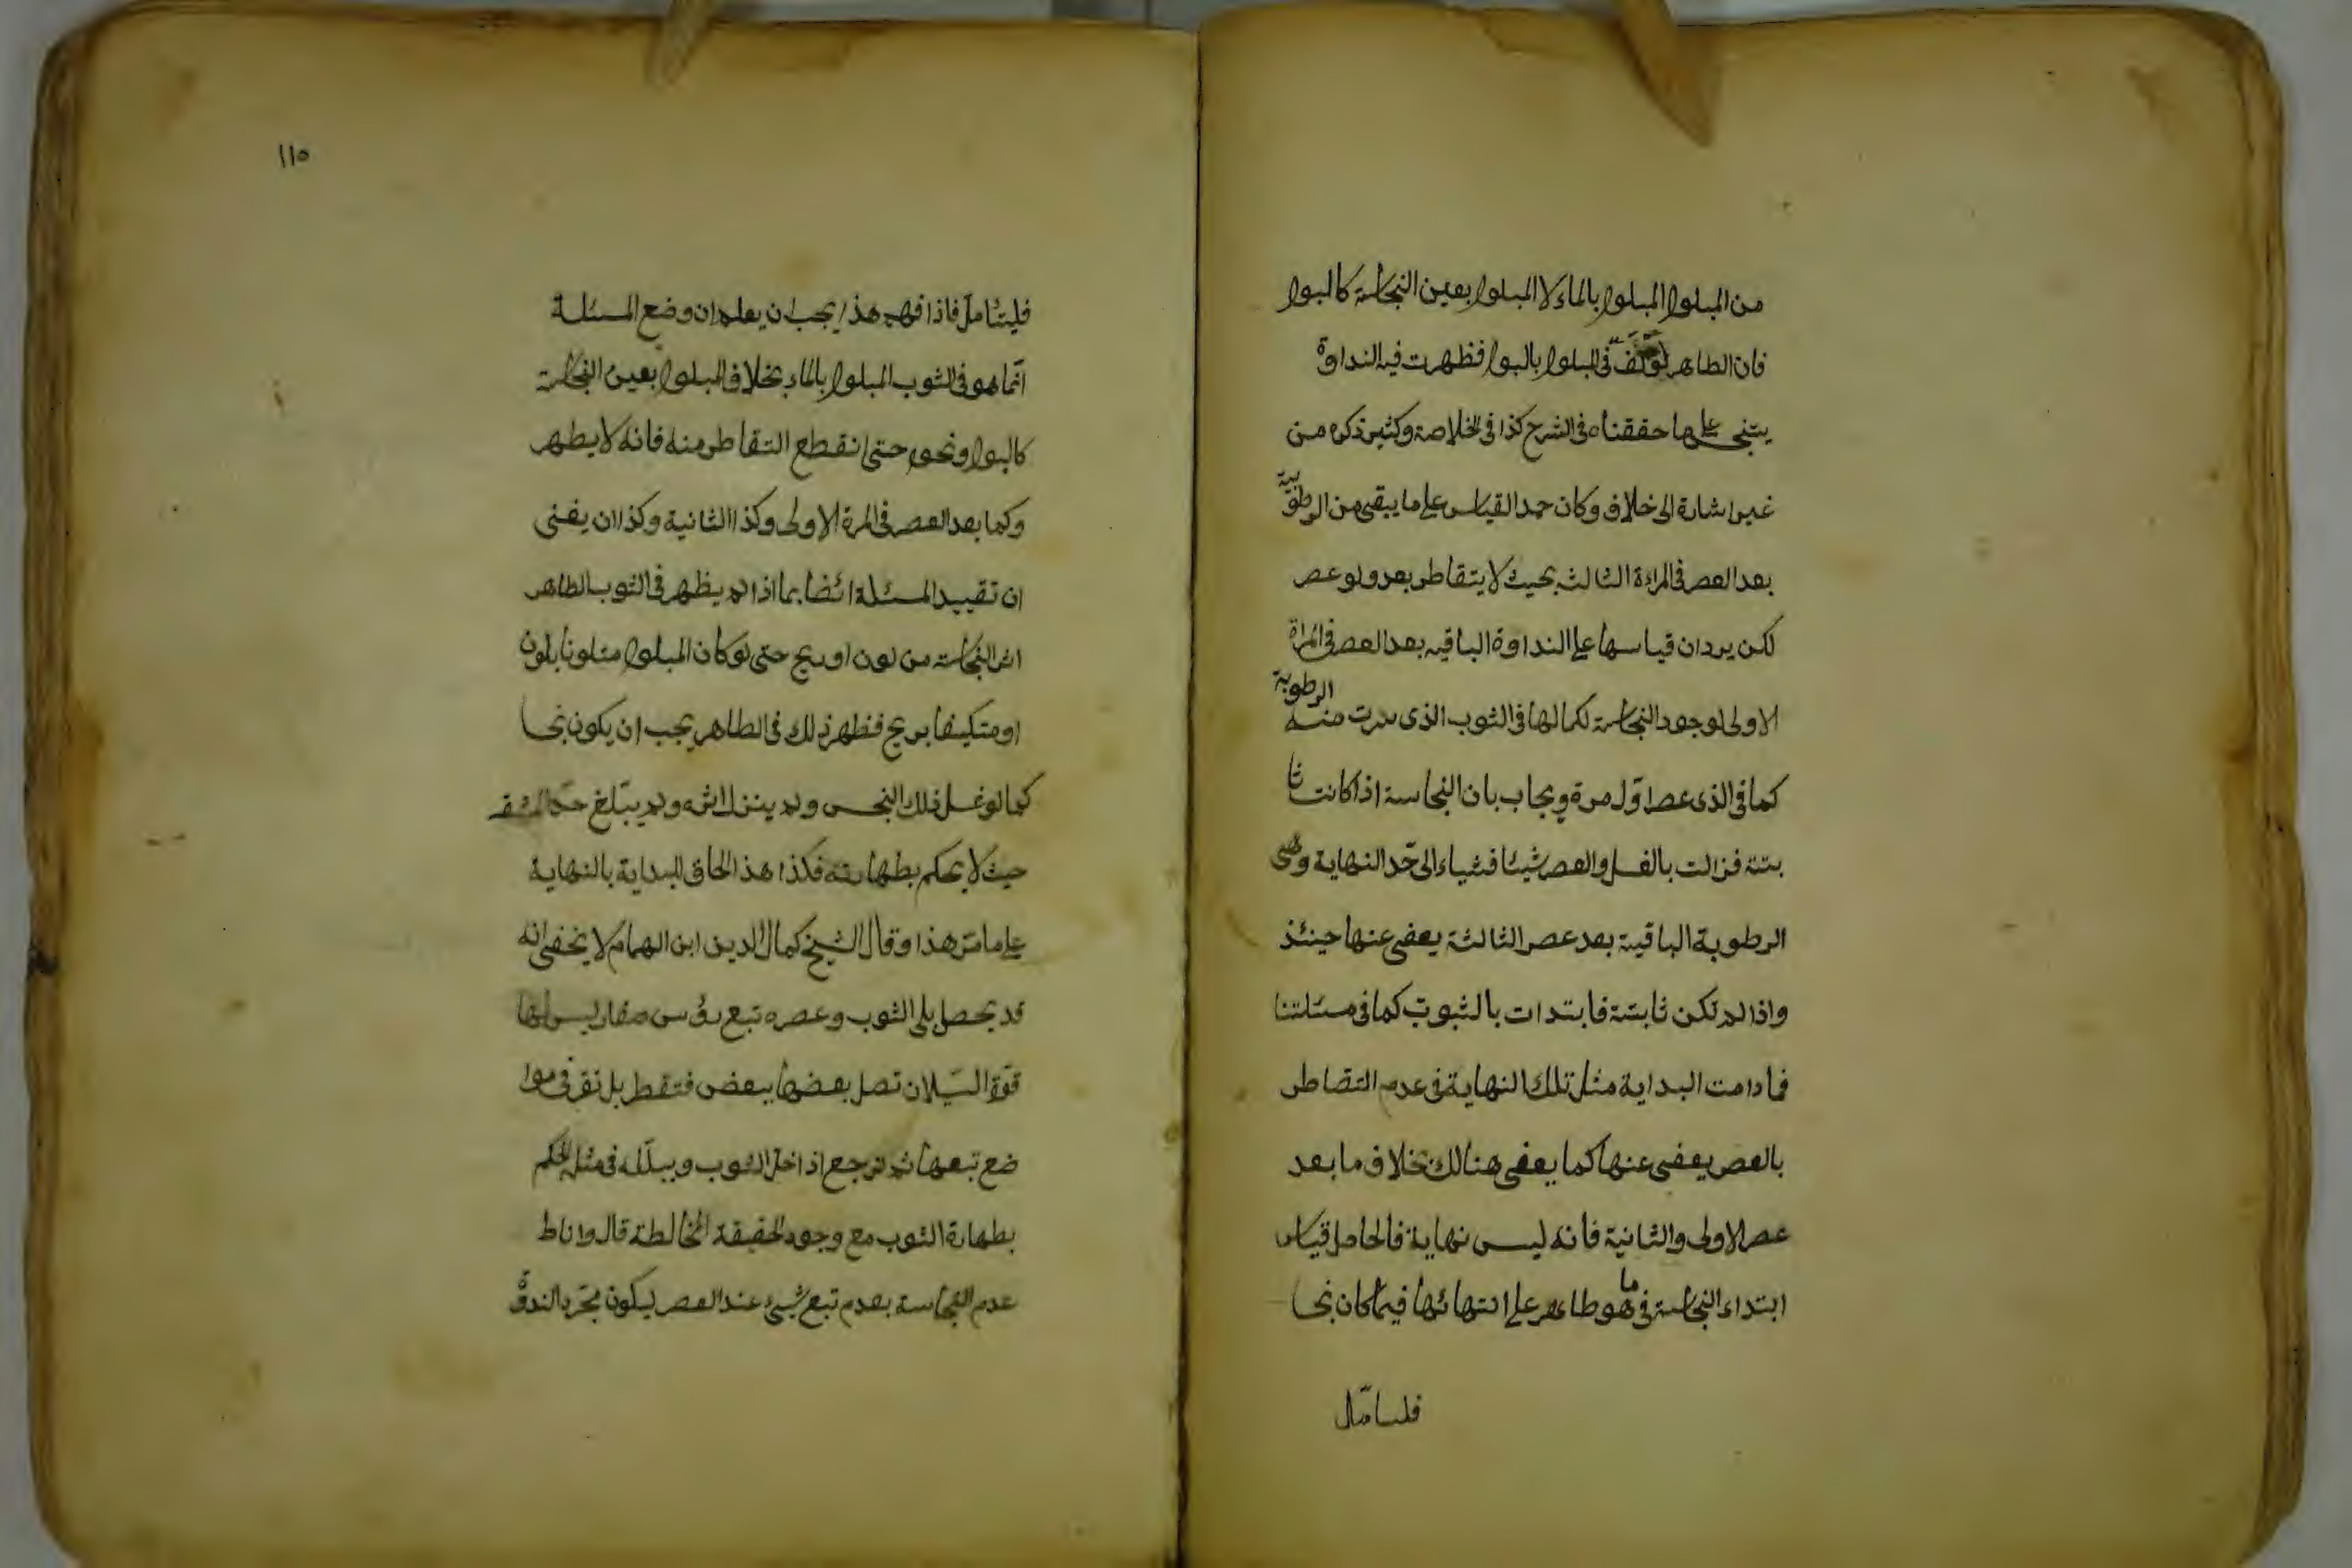 من المبلول المبلول بالماء لا المبلول بعين النجاسة كالبول
فان الطاهر لو لف فى المبلول بالبول فظهرت فيه النداوة
يتنجى على ما حققناه فى الشرح كذا فى الخلاصة وكثير ذكره من
غير اشارة الى خلاف وكان حمد القياس على ما يبقى من الرطوبة
بعد العصر فى المراة الثالثة بحيث لا يتقاطر بعد ولو عصر
لكن يرد ان قياسها على النداوة الباقيه بعد العصر فى المراة
الاولى لوجود النجاسة لكمالها فى الثوب الذى سرت منه الرطوبة
كما فى الذى عصر اوّل مرة ويجاب بان النجاسة اذا كانت ثا
بتة فزالت بالغسل والعصر شيئا فشياء الى حّد النهاية وهى
الرطوبة الباقية بعد عصر الثالثة يعفى عنها حينئذ
واذا لم تكن ثابتة فابتدات بالثبوت كما فى مسئلتنا
فما دامت البداية مثل تلك النهاية فى عدم التقاطر
بالعصر يعفى عنها كما يعفى هنالك بخلاف ما بعد
عصر الاولى والثانية فانه ليس نهاية فالحاصل قياس
ابتداء النجاسة فى ما هو طاهر على انتهائها فيما كان نجسا
فليتامّل
١١٥
فليتاملّ فاذا فهم هذا يجب ان يعلم ان وضع المسئلة
انّما هو فى الثوب المبلول بالماء بخلاف المبلول بعين النجاسة
كالبول ونحوه حتى انقطع التقاطر منه فانه لا يطهر
وكما بعد العصر فى المرة الاولى وكذا الثانية وكذا ان يفنى
ان تقييد المسئلة ائضا بما اذا لم يظهر فى الثوب الطاهر
اثر النجاسة من لون او ريح حتى لو كان المبلول متلونا بلون
او متكيفا بريح فظهر ذلك فى الطاهر يجب ان يكون نجسا
كما لو غسل ذلك النجس ولم ينزل اثره ولم يبلغ حدّ المشقه
حيث لا يحكم بطهارته فكذا هذا لحاق للبداية بالنهاية
على ما مرّ هذا وقال الشيخ كمال الدين ابن الهمام لا يخفى انه
قد يحصل بلى الثوب وعصره تبع رؤس صغار ليس لها
قوّة السّيلان تصل بعضها ببعض فتقطر بل تقر فى موا
ضع تبعها ثم ترجع اذا حل الثوب ويبللّه فى مثله الحكم
بطهارة الثوب مع وجود الحقيقة المخالطة قال واناط
عدم النجاسة بعدم تبع شيئ عند العصر ليكون مجّرد الندوة